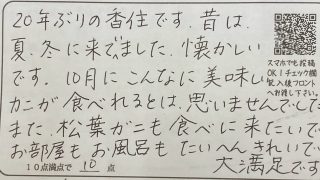 20年ぶりの香住です。昔は、
夏、冬に来てました。懐かしい
です。10月にこんなに美味しい
カニが食べれるとは、思いませんでした
また、松葉がニも食べに来たいで
お部屋もお風呂もたいへんきれいで
大満足です
10点満点で 10 点
スマホでも投稿
OK!チェック欄
記入後フロント
へお渡し下さい。